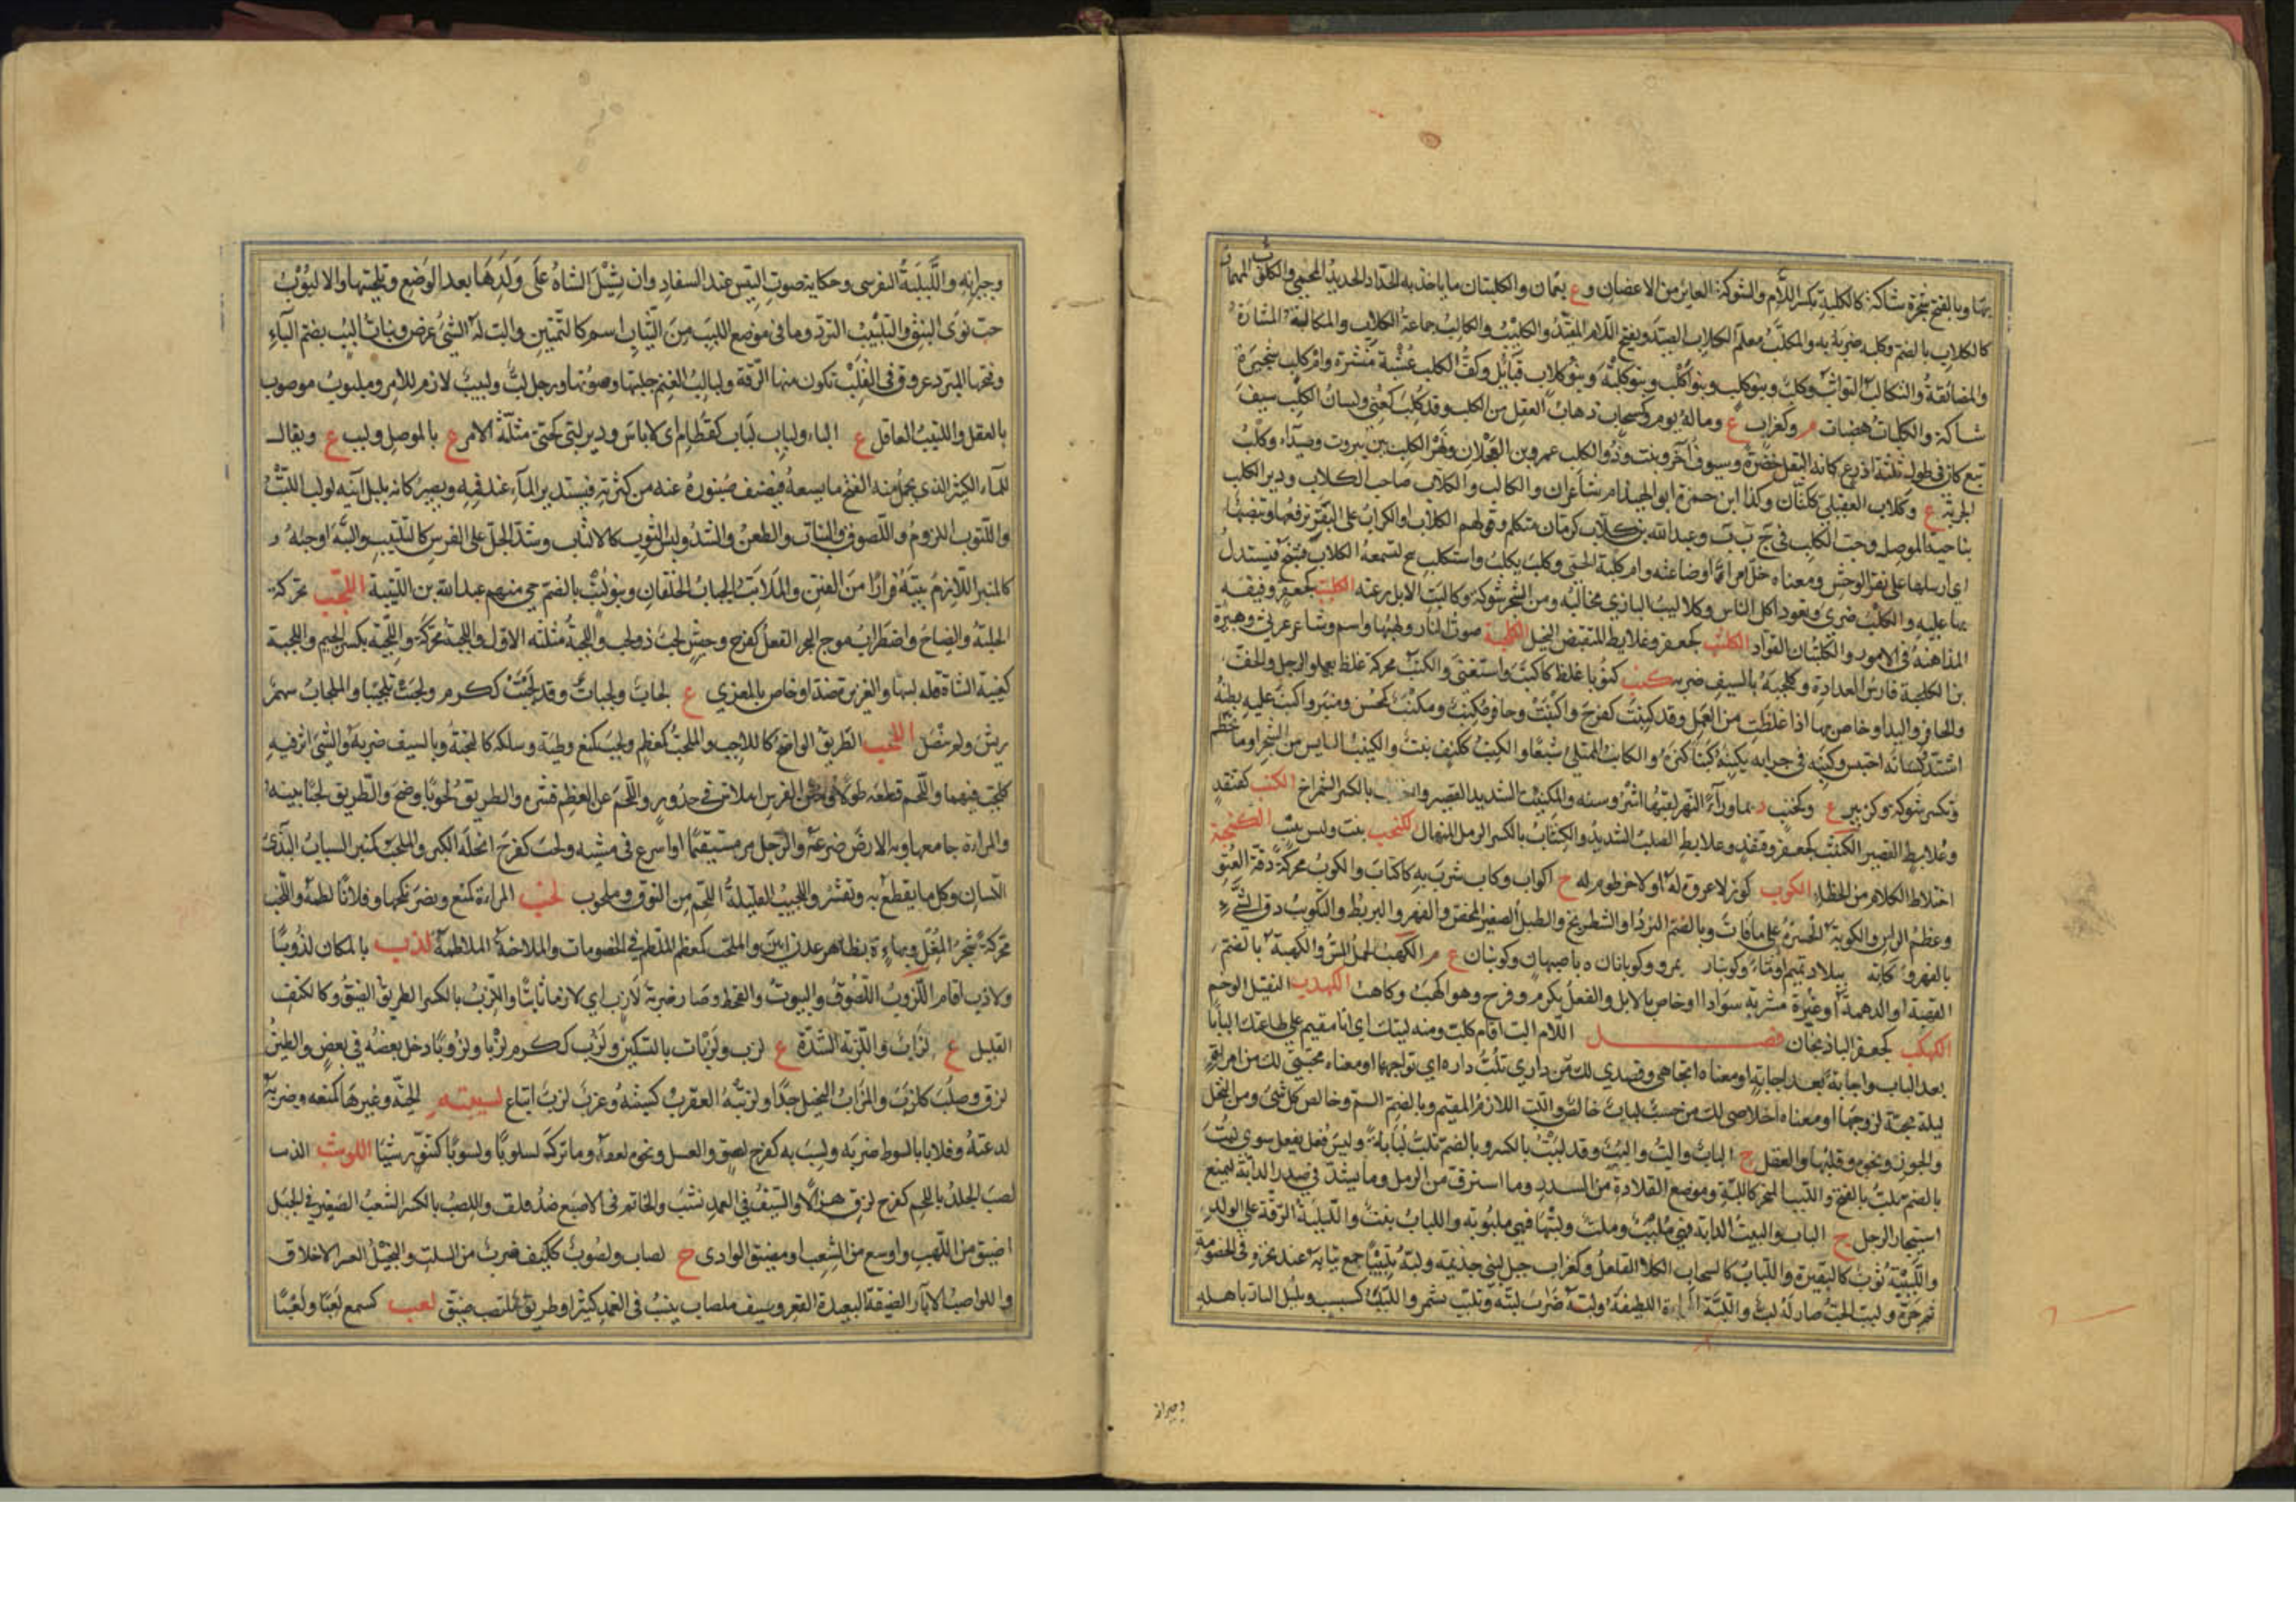 بهاء وبالفتح شجرة شاكة كالكلبة بكسر اللام والشوكة العارية من الاغصان وع بعمان والكلبتان ما ياخذ به الحداد الحديد المحمى
كالكلاب بالضم وكلبه ضربه به والمكلب معلم الكلاب الصيد وبفتح اللام المقيد والكليب والكالب جماعة الكلاب والمكالبة المشارة
والمضايقة والتكالب التواثب وكلب وبنو كلب وبنو اكلب وبنو كلبة وبنو كلاب قبائل وكف الكلب عشبة منتشرة وام كلب شجيرة
شاكة والكلبات هضبات م وكغراب ع وماء له يوم وكسحاب ذهاب العقل من الكلب وقد كلب كعنى ولسان الكلب سيف
تبع كان في طوله ثلثة اذرع كانه البقل خضرة وسيوف آخر ونبت وذو الكلب عمرو بن العجلان ونهر الكلب بين بيروت وصيداء وكلب
الجربة ع وكلاب العقيلي ككتان وكذا ابن حمزة ابو الهيذام شاعران والكالب والكلاب صاحب الكلاب ودير الكلب
بناحية الموصل وجب الكلب في ج ب ب وعبد الله بن كلاب كرمان متكلم وقولهم الكلاب او الكراب على البقر ترفعها وتنصبها
اي ارسلها على بقر الوحش ومعناه خل امرأ وصناعته وام كلبة الحمى وكلب يكلب واستكلب نبح لتسمعه الكلاب فتنبح فيستدل
بها عليه والكلب ضري وتعود اكل الناس وكلاليب البازي مخالبه ومن الشجر شوكه وكالبت الابل رعته الكلتب كجعفر وقنفذ
المداهنة في الامور والكلتبان القواد الكلتب كجعفر وعلابط المتقبض البخيل الكلحبة صوت النار ولهبها واسم وشاعر عرني وهبيرة
بن الكلحبة فارس العرادة وكلحبه بالسيف ضربه كنب كنوبا غلظ كاكنب واستغنى والكنب محركة غلظ يعلو الرجل والخف
والحافر واليد او خاص بها اذا غلظت من العمل وقد كنبت كفرح واكنبت وحافر مكنب ومكنب كمحسن ومنبر واكنب عليه بطنه
اشتد لسانه احتبس وكنبه في جرابه يكنبه كنبا كنزه والكانب الممتلئ شبعا والكنب ككتف نبت والكنيب اليابس من الشجر او ما تحطم
وتكسر شوكه وكزبير ع وكجنب د بما وراء النهر لقبها اشروسنه والمكنئب الشديد القصير بالكسر الشمراخ الكنتب كقنفذ
وعلابط القصير الكنثب كجعفر وقنفذ وعلابط الصلب الشديد والكنثاب بالكسر الرمل المنهال الكنحب نبت وليس بثبت الكنخبة
اختلاط الكلام من الخطاء الكوب كوز لا عروة له او لا خرطوم له ج اكواب وكاب شرب به كاكتاب والكوب محركة دقة العنق
وعظم الراس والكوبة الحسرة على ما فات وبالضم النرد او الشطرنج والطبل الصغير المخصر والفهر والبربط والتكويب دق الشيء
بالفهر وكابة ببلاد تميم او ماء وكوبنان بمرو وكوبانان ه باصبهان وكوبنان ع م الكهب الجمل المسن والكهبة بالضم
القهبة او الدهمة او غبرة مشربة سوادا او خاص بالابل والفعل ككرم وفرح وهو اكهب وكاهب الكهدب الثقيل الوخم
الكهكب كجعفر الباذنجان فصل اللام الب اقام كلب ومنه لبيك اي انا مقيم على طاعتك البابا
بعد الباب واجابة بعد اجابة او معناه اتجاهي وقصدي لك من داري تلب داره اي تواجهها او معناه محبتي لك من امراة
لبة محبة لزوجها او معناه اخلاصي لك من حسب لباب خالص واللب اللازم المقيم وبالضم السم وخالص كل شئ ومن النخل
والجوز ونحوه وقلبها والعقل ج الباب والب والبب وقد لببت بالكسر وبالضم تلب لبابة وليس فعل يفعل سوى لببت
بالضم تلب بالفتح واللبب المنحر كاللبة وموضع القلادة من الصدر وما استرق من الرمل وما يشد في صدر الدابة ليمنع
استيخار الرحل ج الباب والببت الدابة فهي ملبب وملب ولببتها فهي ملبوبة واللباب نبت واللبلبة الرقة على الولد
واللبيبة ثوب كالبقيرة واللباب كالسحاب الكلاء القليل وكغراب جبل لبني جذيمة ولببه تلبيبا جمع ثيابه عند نحره في الخصومة
ثم جره ولبب الحب صار له لب واللبة المراة اللطيفة ولبه ضرب لبته وتلبب تشمر واللبب كسبب وبلبل البار باهله
وجيرانه
وجيرانه واللبلبة التفرق وحكاية صوت التيس عند السفاد وان تشبل الشاة على ولدها بعد الوضع وتلحسها والالبوب
حب نوى النبق والتلبيب التردد وما في موضع اللبب من الثياب اسم كالتمتين والب له الشئ عرض وبنات البب بضم الباء
وفتحها المبرد عروق في القلب تكون منها الرقة ولبالب الغنم جلبتها وصوتها ورجل لب ولبيب لازم للامر وملبوب موصوف
بالعقل واللبيب العاقل ع الباء ولباب لباب كقطام اي لا باس ودير لبى كحتى مثلثة اللام ع بالموصل ولبب ع ويقال
للماء الكثير الذي يحمل منه الفتح ما يسعه فيضيف صنبوره عنه من كثرته فيستدير الماء عند فيه ويصير كانه بلبل آنية لولب اللتب
واللتوب اللزوم واللصوق والثبات والطعن والشد ولبس الثوب كالالتتاب وشد الجل على الفرس كالتلتيب والتبه اوجبه و
كالمنبر اللازم بيته فرارا من الفتن والملاتب الجباب الخلقان وبنو لتب بالضم حي منهم عبد الله بن اللتبية اللجب محركة
الجلبة والصياح واضطراب موج البحر الفعل كفرح وجيش لجب ذو لجب واللجبة مثلثة الاول واللجبة محركة واللجبة بكسر الجيم واللجبة
كعنبة الشاة قل لبنها والغزيرة ضد او خاص بالمعزي ع لجاب ولجبات وقد لجبت ككرم ولجبت تلجيبا والملجاب سهم
ريش ولم ينصل اللحب الطريق الواضح كاللاحب والملحب كمعظم ولحب كمنع وطئه وسلكه كالتحبه وبالسيف ضربه والشئ اثر فيه
كلحب فيهما واللحم قطعه طولا ومتن الفرس املاس في حدور واللحم عن العظم قشره والطريق لحوبا وضح والطريق لحبا بينه
والمراة جامعها وبه الارض صرعه والرجل مر مستقيما او اسرع في مشيه ولحب كفرح انحله الكبر والملحب كمنبر السباب البذي
اللسان وكل ما يقطع به ويقشر واللحيب القليلة اللحم من النوق وملحوب لخب المراة كمنع ونصر نكحها وفلانا لطمه واللخب
محركة شجر المقل وبهاء ة بظاهر عدن ابين والملخب كمعظم الملطم في الخصومات والملاخبة الملاطمة لذب بالمكان لذوبا
ولاذب اقام اللزوب اللصوق والثبوت والقحط وصار ضربة لازب اي لازما ثابتا واللزب بالكسر الطريق الضيق وكالكتف
القليل ع لزاب واللزبة الشدة ع لزب ولزبات بالتسكين ولزب ككرم لزبا ولزوبا دخل بعضه في بعض والطين
لزق وصلب كلزب والملزاب البخيل جدا ولزبته العقرب كسبته وعزب لزب اتباع لسبته الحية وغيرها كمنعه وضربه
لدغته وفلانا بالسوط ضربه ولسب به كفرح لصق والعسل ونحوه لعقه وما ترك لسلوبا ولسوبا كتنور شيئا اللوشب الذئب
لصب الجلد باللحم كفرح لزق هزالا والسيف في الغمد نشب والخاتم في الاصبع ضد قلق واللصب بالكسر الشعب الصغير في الجبل
اضيق من اللهب واوسع من الشعب او مضيق الوادي ج لصاب ولصوب ككيف ضرب من السلت والبخيل العسر الاخلاق
واللواصب الابار الضيقة البعيدة القعر وسيف ملصاب ينشب في الغمد كثيرا وطريق ملتصب ضيق لعب كسمع لعبا ولعبا